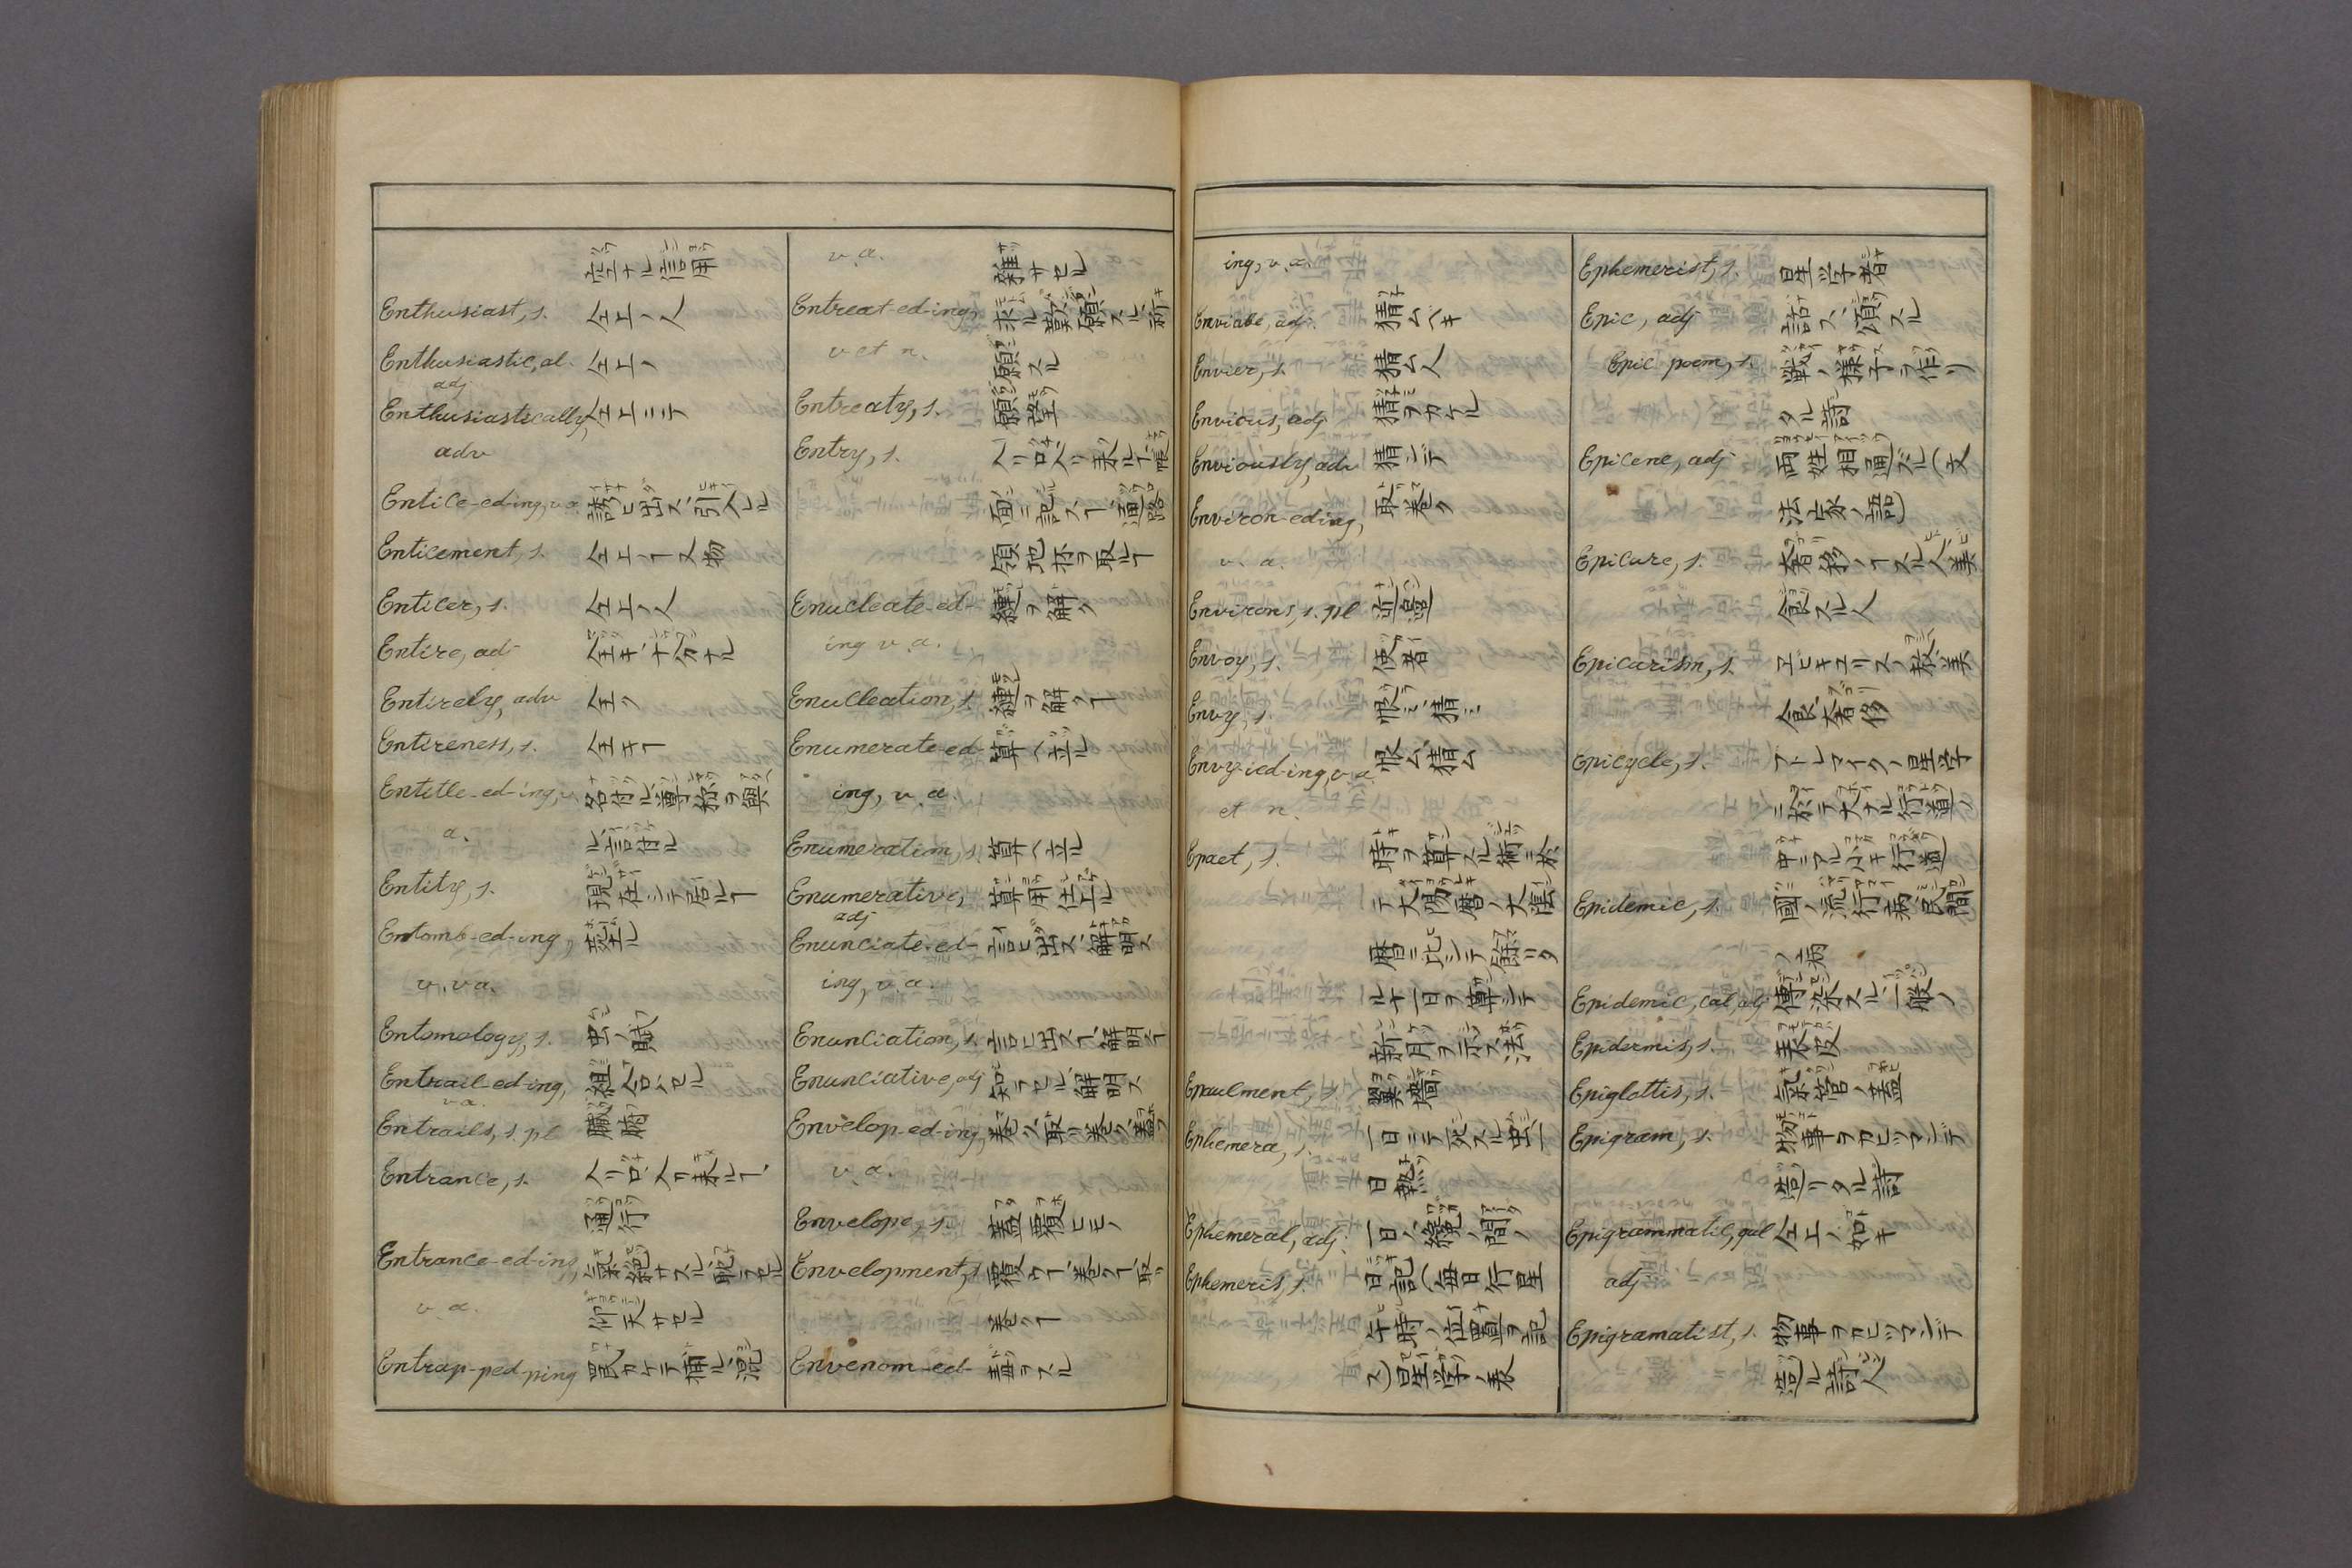 空ナル信用
Enthusiast, s. 仝上ノ人
Enthusiastic, al. 仝上ノ
adj
Enthusiastically, 仝上ニテ
adv
Entice-ed-ing, v a 誘ヒ出ス、引入ヒル
Enticement, s. 仝上ノヿ又物
Enticer, s. 仝上ノ人
Entire, adj 全キ、十分ナル
Entirely, adv 全ク
Entireness, s. 全キヿ
Entitle-ed-ing, v 名付ル、尊称ヲ與
a. ル、言付ル
Entity, s. 現在シテ居ルヿ
Entomb-ed-ing,
v. v a.
Entomology, s. 虫ノ
Entrail-ed-ing, 組合ハセル
v a.
Entrails, s. pl 臓腑
Entrance, s. 入リ口、入リ来ルヿ、
通行
Entrance-ed-ing, 氣絶サスル、
v a. 仰天サセル
Entrap-ped-ping 罠カケテ捕ル、混
v. a. 雑サセル
Entreat-ed-ing, 求ル、歎願スル、祈
v et n. 願スル
Entreaty, s. 願望
Entry, s. 入リ口、入リ来ルヿ、帳
面ニ記スヿ、通路
領地抔ヲ取ルヿ
Enucleate-ed- 縺ヲ解ク
ing v. a.
Enucleation, s. 縺ヲ解クヿ
Enumerate-ed- 算へ立ル
ing, v. a.
Enumeration, s. 算へ立ル
Enumerative, 算用仕上ル
adj
Enunciate-ed- 言ヒ出ス、解明ス
ing, v. a.
Enunciation, s. 言ヒ出スヿ、解明ヿ
Enunciative, adj 知ラセル、解明ス
Envelop-ed-ing, 巻ク、取リ巻ク、蓋フ
v. a.
Envelope, s. 蓋、覆ヒモノ
Envelopment, s. 覆ウヿ、巻クヿ、取リ
巻クヿ
Envenom-ed- 毒ヲスル
ing, v. a.
Enviable, adj. 猜ムヘキ
Envier, s. 猜ム人
Envious, adj 猜ヲカケル
Enviously, adv 猜シテ
Environ-ed-ing, 取巻ク
v. a.
Environs, s. pl 近邉
Envoy, s. 使者
Envy, s. 恨ミ、猜ミ
Envy-ied-ing, v. a. 恨ム、猜ム
et n.
Epact, s. 時ヲ算スル術ニ於
テ大陽暦ノ大陰
暦ニ比シテ餘リタ
ル十一日ヲ算シテ
新月ヲ示ス法
Epaulment, s. 翼墻
Ephemera, s. 一日ニテ死スル虫、一
日熱
Ephemeral, adj. 一日ノ、纔ノ間ノ
Ephemeris, s. 日記(毎日行星
午時ノ位置ヲ記
ス)星学ノ表
Ephemerist, s. 星学者
Epic, adj 話ス、頌スル
Epic poem, s. 戦ノ様子ヲ作リ
タル詩
Epicene, adj 両姓相通ズル(文
法家ノ語)
Epicure, s. 奢移ノヿスル人、美
食スル人
Epicurism, s. ヱピキユリスノ教、美
食、奢侈
Epicycle, s. プトレマイクノ星学
ニ於テ大ナル行道ノ
中ニアル小キ行道
Epidemic, s. 國ノ流行病、民間
ノ病
Epidemic, cal, adj 傳染スル、一般ノ
Epidermis, s. 表皮
Epiglottis, s. 氣管ノ蓋
Epigram, s. 物事ヲカヒツマンデ
造リタル詩
Epigrammatic, gal 仝上ノ如キ
adj
Epigramatist, s. 物事ヲカヒツマンデ
造ル詩人